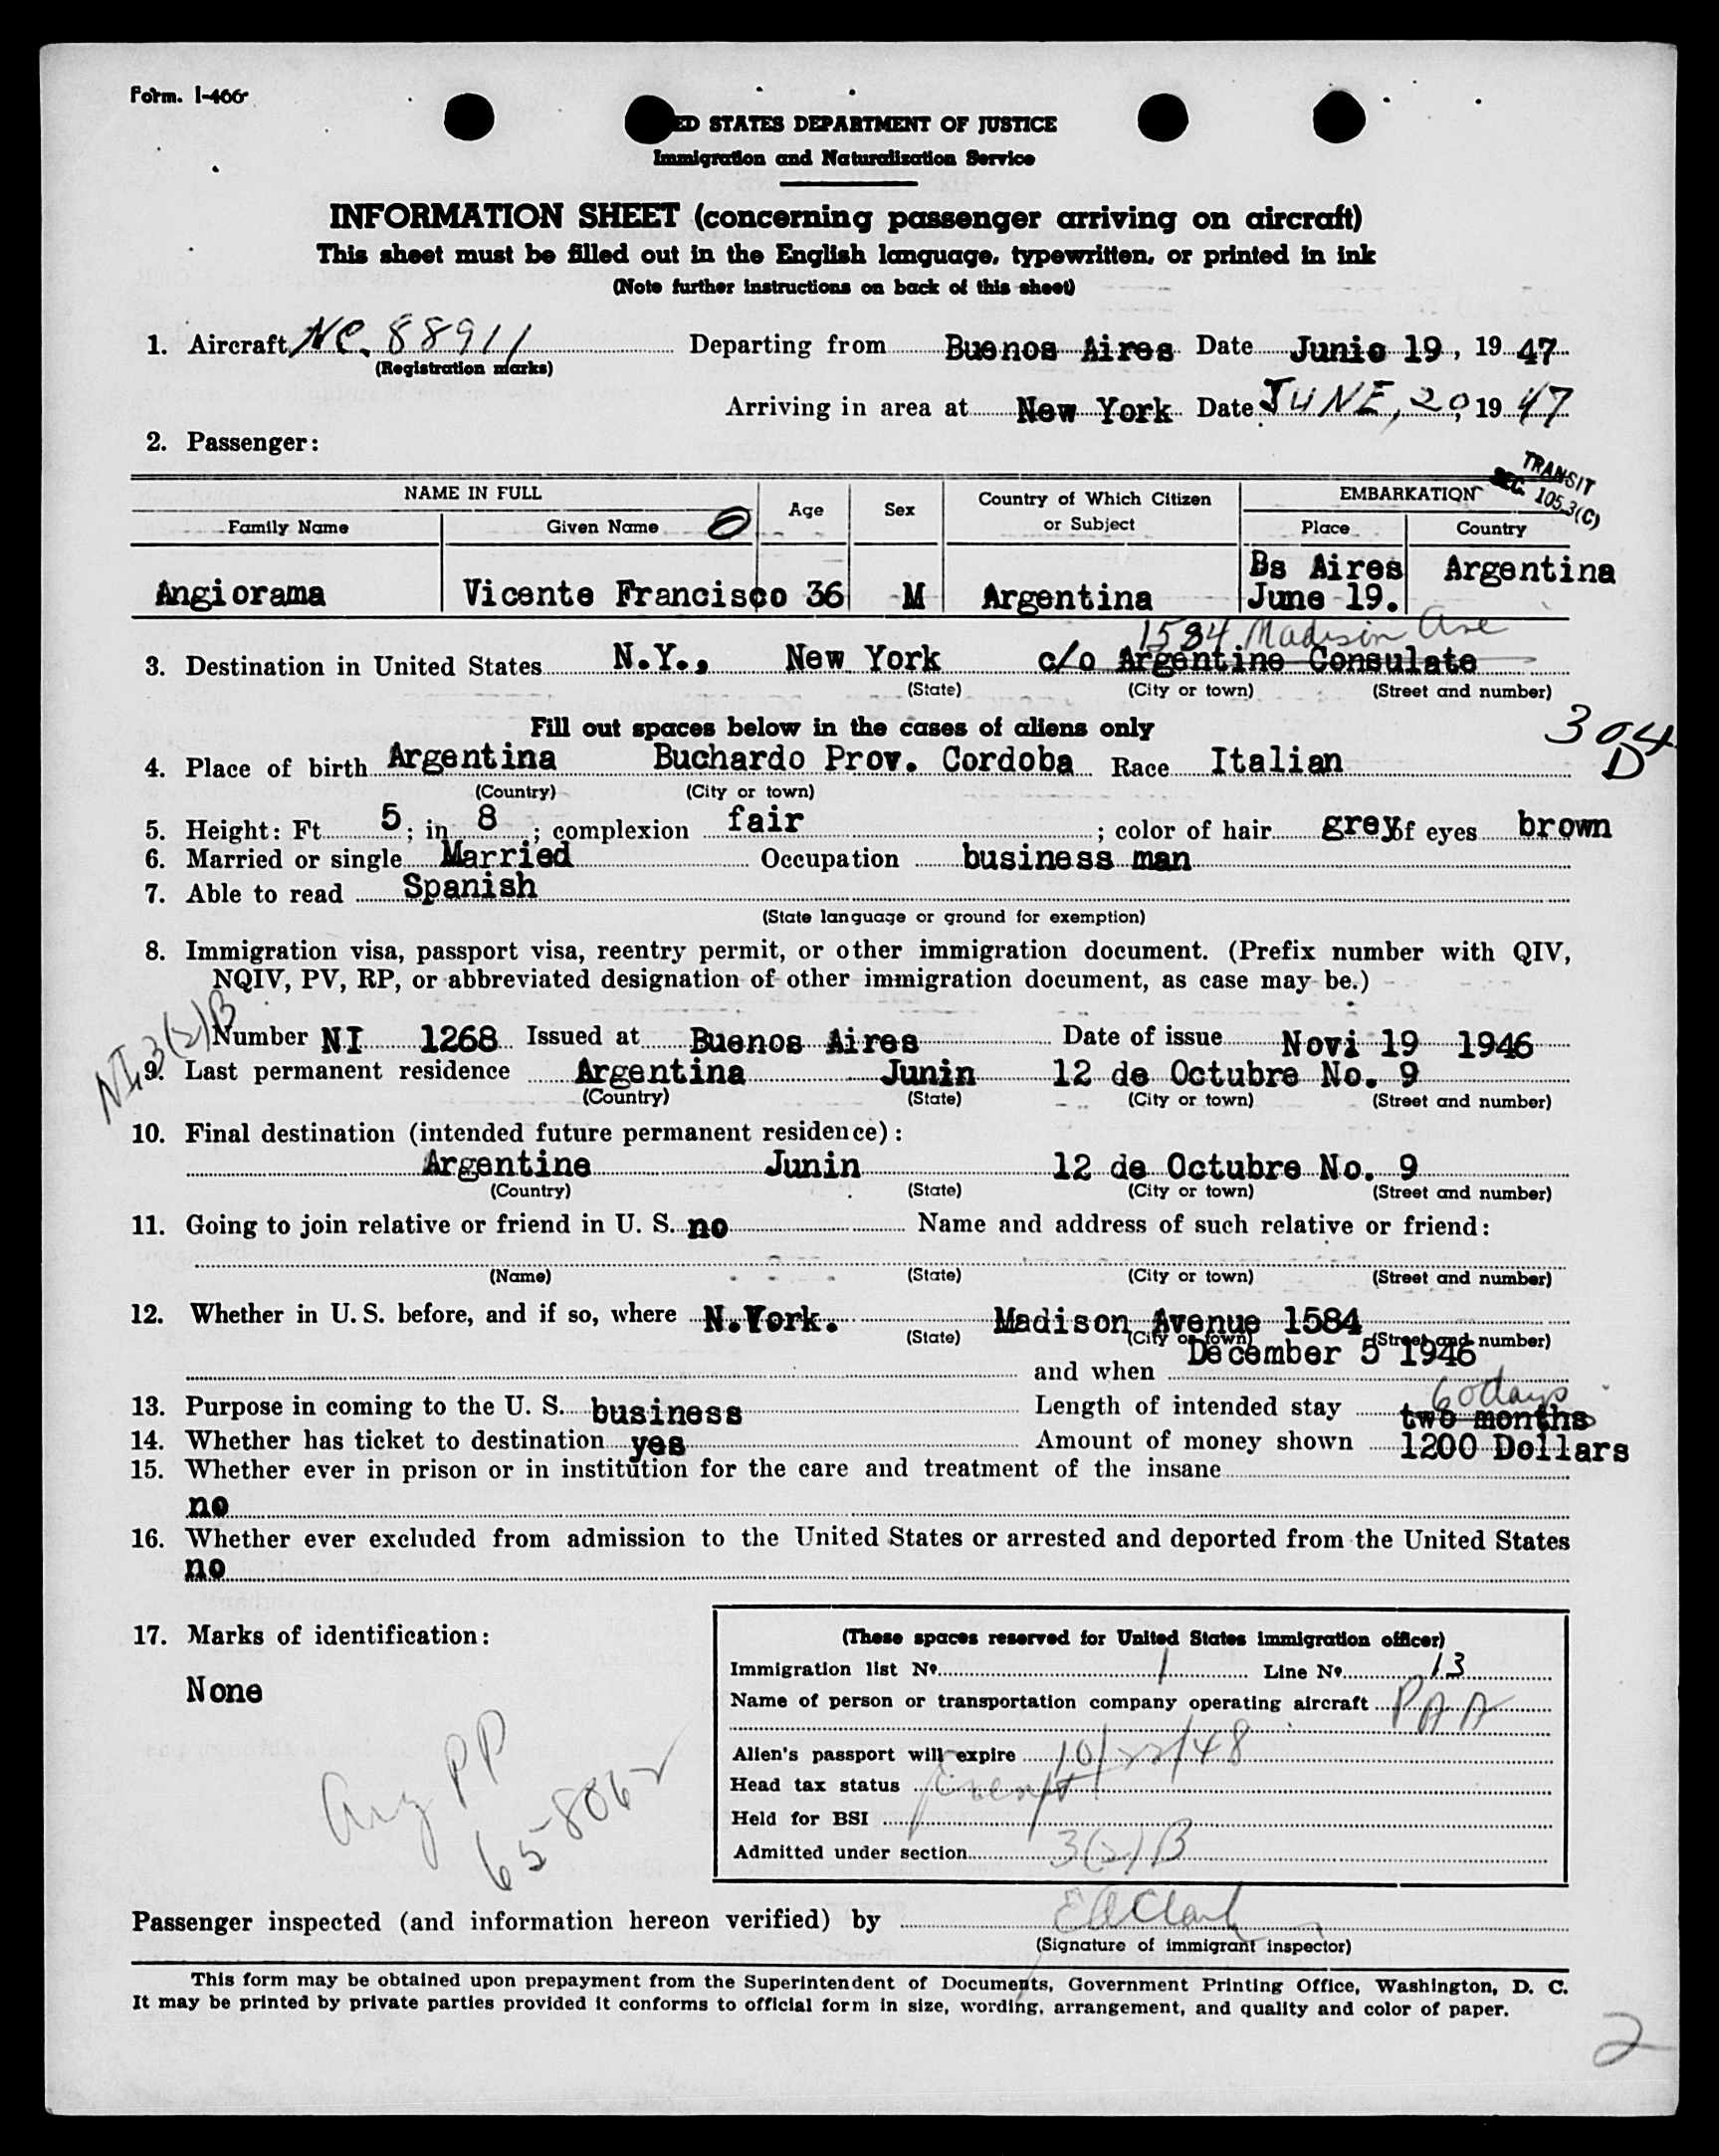 Form. I-466
ED STATES DEPARTMENT OF JUSTICE
Immigration and Naturalization Service
INFORMATION SHEET (concerning passenger arriving on aircraft)
This sheet must be filled out in the English language, typewritten, or printed in ink
(Note further instructions on back of this sheet)
1. Aircraft NC. 88911 Departing from Buenos Aires Date Junio 19, 1947
(Registration marks)
Arriving in area at New York Date JUNE, 20, 1947
2. Passenger:
TRANSIT
SEC. 105.3(C)
NAME IN FULL Age Sex Country of Which Citizen or Subject EMBARKATION
Family Name Given Name Place Country
Bs Aires Argentina
Angiorama Vicente Francisco 36 M Argentina June 19.
1584 Madison Ave
3. Destination in United States N.Y., New York c/o Argentine Consulate
(State) (City or town) (Street and number)
Fill out spaces below in the cases of aliens only
304
D
4. Place of birth Argentina Buchardo Prov. Cordoba Race Italian
(Country) (City or town)
5. Height: Ft 5; in 8; complexion fair; color of hair grey of eyes brown
6. Married or single Married Occupation business man
7. Able to read Spanish
(State language or ground for exemption)
8. Immigration visa, passport visa, reentry permit, or other immigration document. (Prefix number with QIV,
NQIV, PV, RP, or abbreviated designation of other immigration document, as case may be.)
NI 3(2)B
Number NI 1268 Issued at Buenos Aires Date of issue Novi 19 1946
9. Last permanent residence Argentina Junin 12 de Octubre No. 9
(Country) (State) (City or town) (Street and number)
10. Final destination (intended future permanent residence):
Argentine Junin 12 de Octubre No. 9
(Country) (State) (City or town) (Street and number)
11. Going to join relative or friend in U. S. no Name and address of such relative or friend:
(Name) (State) (City or town) (Street and number)
12. Whether in U. S. before, and if so, where N.York. Madison Avenue 1584
(State) (City or town) (Street and number)
and when December 5 1946
60 days
13. Purpose in coming to the U. S. business Length of intended stay two months
14. Whether has ticket to destination yes Amount of money shown 1200 Dollars
15. Whether ever in prison or in institution for the care and treatment of the insane
no
16. Whether ever excluded from admission to the United States or arrested and deported from the United States
no
17. Marks of identification:
None
Arg PP
658062
(These spaces reserved for United States immigration officer)
Immigration list No. 1 Line No. 13
Name of person or transportation company operating aircraft PAA
Alien's passport will expire 10/22/48
Head tax status Exempt
Held for BSI
Admitted under section 3(2)B
Passenger inspected (and information hereon verified) by E A Clark
(Signature of immigrant inspector)
This form may be obtained upon prepayment from the Superintendent of Documents, Government Printing Office, Washington, D. C.
It may be printed by private parties provided it conforms to official form in size, wording, arrangement, and quality and color of paper.
2